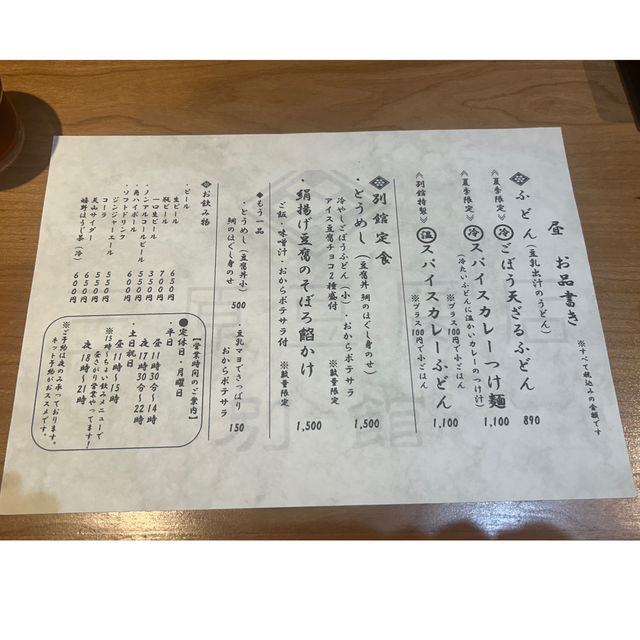 昼 お品書き
※すべて税込みの金額です
ふどん（豆乳出汁のうどん）
《夏季限定》 冷 ごぼう天ざるふどん 890
《夏季限定》 冷 スパイスカレーつけ麺 1,100
（冷たいふどんに温かいカレーのつけ汁）
※プラス100円で小ごはん
《別館特製》 温 スパイスカレーふどん 1,100
※プラス100円で小ごはん
別館定食
・とうめし（豆腐丼 鯛のほぐし身のせ） 1,500
冷やしごぼうふどん（小）・おからポテサラ
アイス豆腐チョコ2種盛付 ※数量限定
・絹揚げ豆腐のそぼろ餡かけ 1,500
ご飯・味噌汁・おからポテサラ付 ※数量限定
◆もう一品
・とうめし（豆腐丼小）
鯛のほぐし身のせ 500
・豆乳マヨでさっぱり
おからポテサラ 150
お飲み物
・ビール
生ビール 650円
瓶ビール 700円
一口生ビール 350円
・ノンアルコールビール 450円
・角ハイボール 600円
・ソフトドリンク
ジンジャーエール 550円
コーラ 550円
天山サイダー 600円
嬉野ほうじ茶（冷） 600円
【営業時間のご案内】
●定休日・月曜日
・平日
昼 11時30分～14時
夜 17時30分～22時
・土日祝日
昼 11時～15時
※15時～ちょい飲みメニューで
昼さがり営業やってます！
夜 18時～21時
※ご予約は夜のみ承っております。
ネット予約がおススメです。
別館